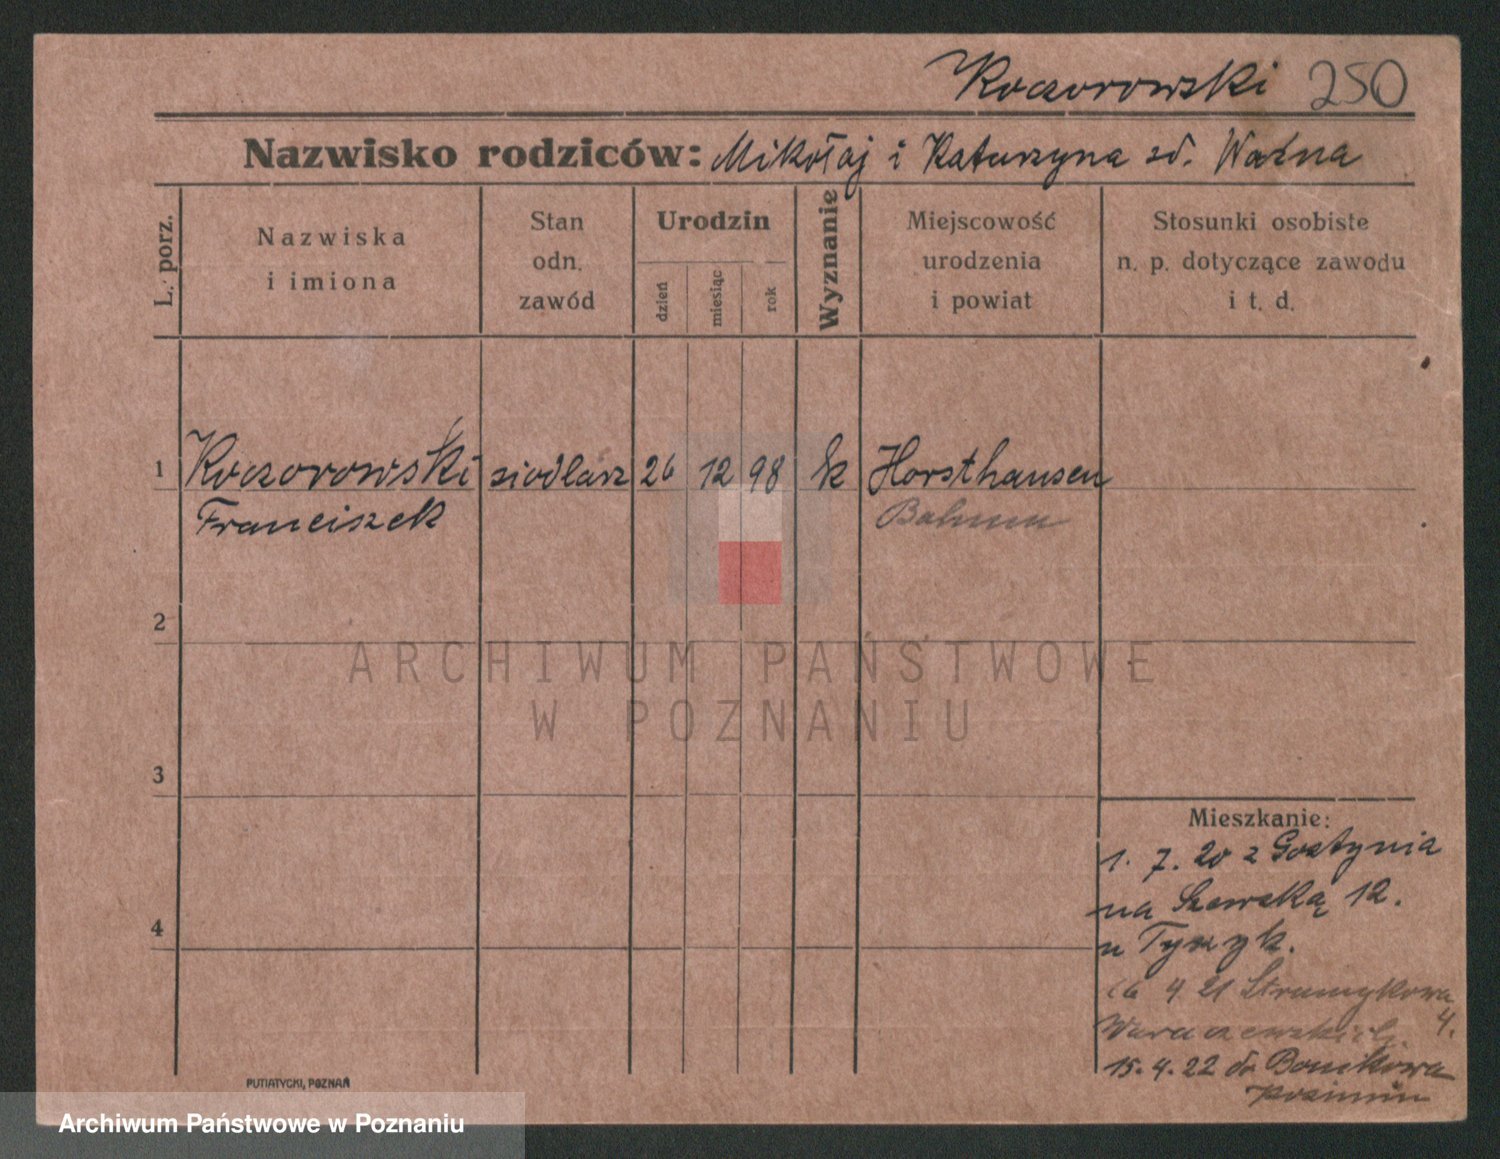 Koczorowski 250
Nazwisko rodziców: Mikołaj i Katarzyna zd. Ważna
L. porz.
Nazwiska
i imiona
Stan
odn.
zawód
Urodzin
dzień
miesiąc
rok
Wyznanie
Miejscowość
urodzenia
i powiat
Stosunki osobiste
n. p. dotyczące zawodu
i t. d.
1 Koczorowski siodlarz 26 12 98 k Horsthausen
Franciszek
2
3
4
ARCHIWUM PAŃSTWOWE
W POZNANIU
Mieszkanie:
1. 7. 20 z Gostynia
na Szewską 12.
u Tyszyk.
4 21 Strumykowa
4.
15. 4. 22 do
PUTIATYCKI, POZNAŃ
Archiwum Państwowe w Poznaniu